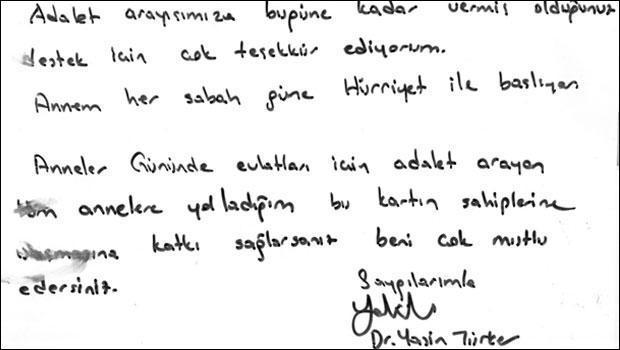 Adalet arayışımıza bugüne kadar vermiş olduğunuz
destek için çok teşekkür ediyorum.
Annem her sabah güne Hürriyet ile başlıyor
Anneler Gününde evlatları için adalet arayan
tüm annelere yolladığım bu kartın sahiplerine
ulaşmasına katkı sağlarsanız beni çok mutlu
edersiniz.
Saygılarımla
Dr. Yasin Türker